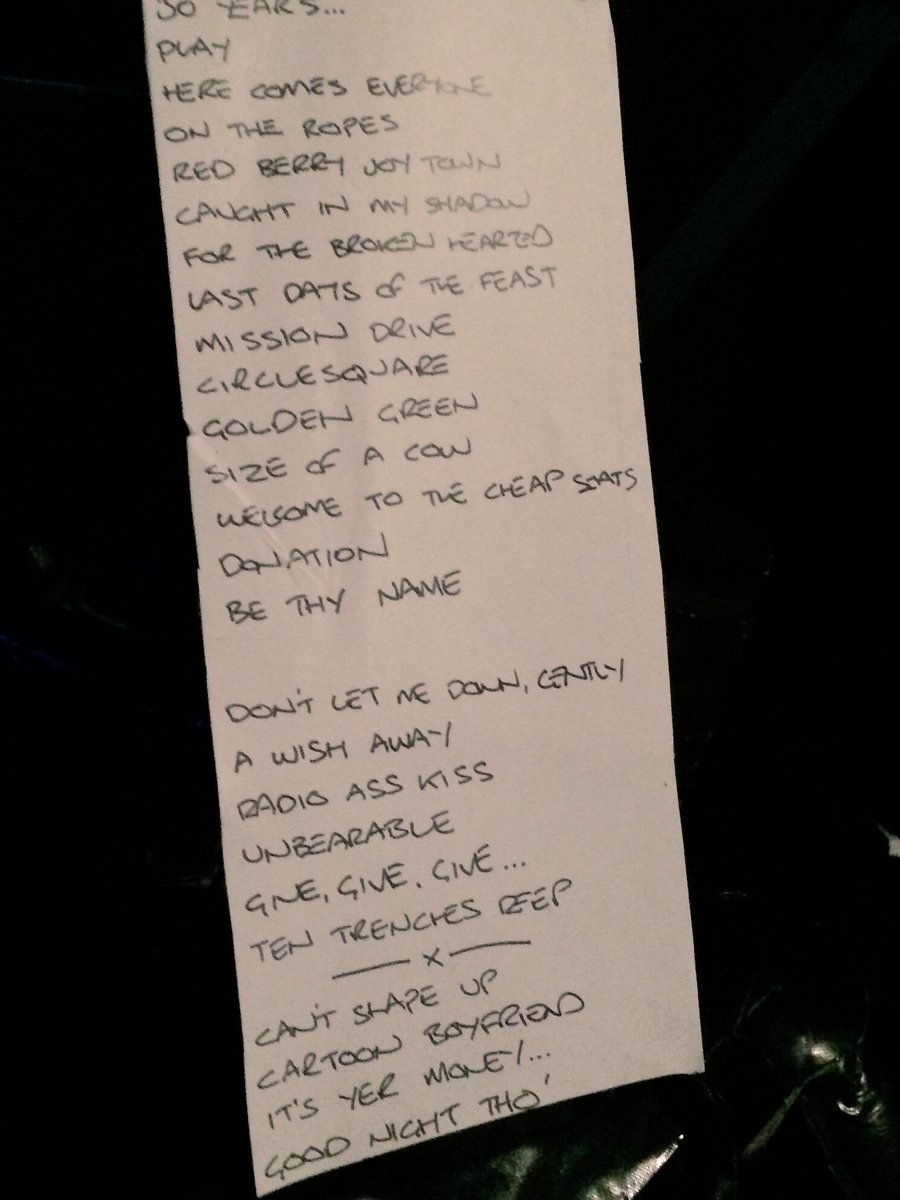 30 YEARS...
PLAY
HERE COMES EVERYONE
ON THE ROPES
RED BERRY JOY TOWN
CAUGHT IN MY SHADOW
FOR THE BROKEN HEARTED
LAST DAYS OF THE FEAST
MISSION DRIVE
CIRCLESQUARE
GOLDEN GREEN
SIZE OF A COW
WELCOME TO THE CHEAP SEATS
DONATION
BE THY NAME
DON'T LET ME DOWN, GENTLY
A WISH AWAY
RADIO ASS KISS
UNBEARABLE
GIVE, GIVE, GIVE...
TEN TRENCHES DEEP
— x —
CAN'T SHAPE UP
CARTOON BOYFRIEND
IT'S YER MONEY...
GOOD NIGHT THO'